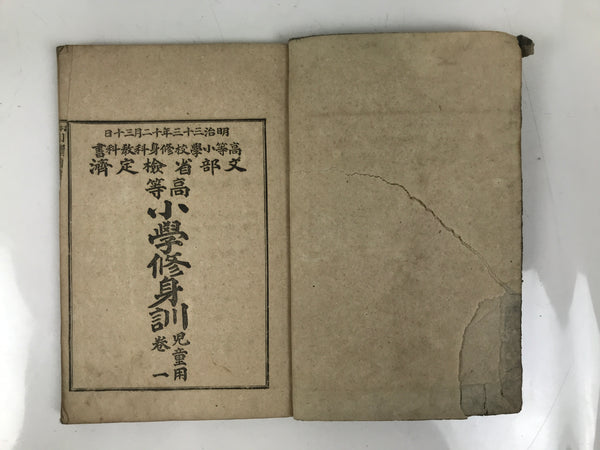 明治三十三年十二月三十日
高等小學校修身科教科書
文部省檢定濟
高等
小學修身訓
兒童用
卷一